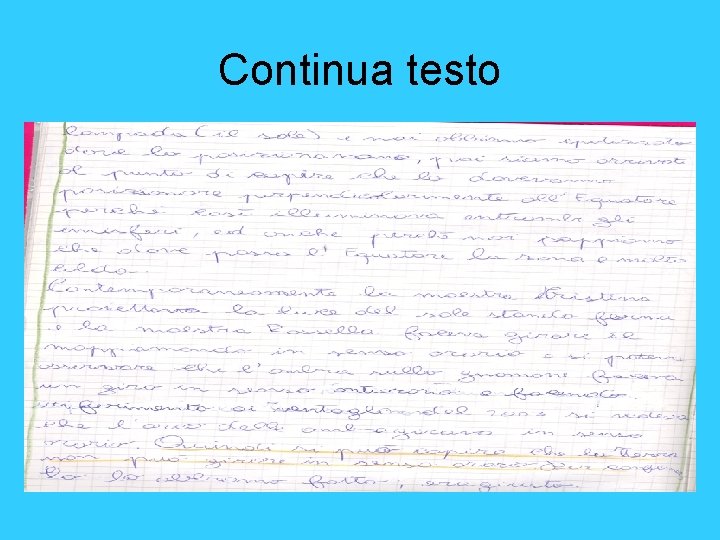 Continua testo
lampada (il sole) e noi abbiamo ipotizzato
dove la posizionavano, poi siamo arrivati
al punto di capire che lo dovevamo
posizionare perpendicolarmente all'Equatore
perché così illuminava entrambi gli
emisferi, ed anche perché noi sappiamo
che dove passa l'Equatore la zona è molto
calda.
Contemporaneamente la maestra Cristina
proiettava la luce del sole stando ferma
e la maestra Rossella faceva girare il
mappamondo in senso orario e si poteva
osservare che l'ombra sullo gnomone faceva
un giro in senso antiorario e facendo
riferimento ai del 2013 si vedeva
che l'arco delle in senso
orario. Quindi si può capire che la Terra
non può girare in senso orario
lo abbiamo fatto,